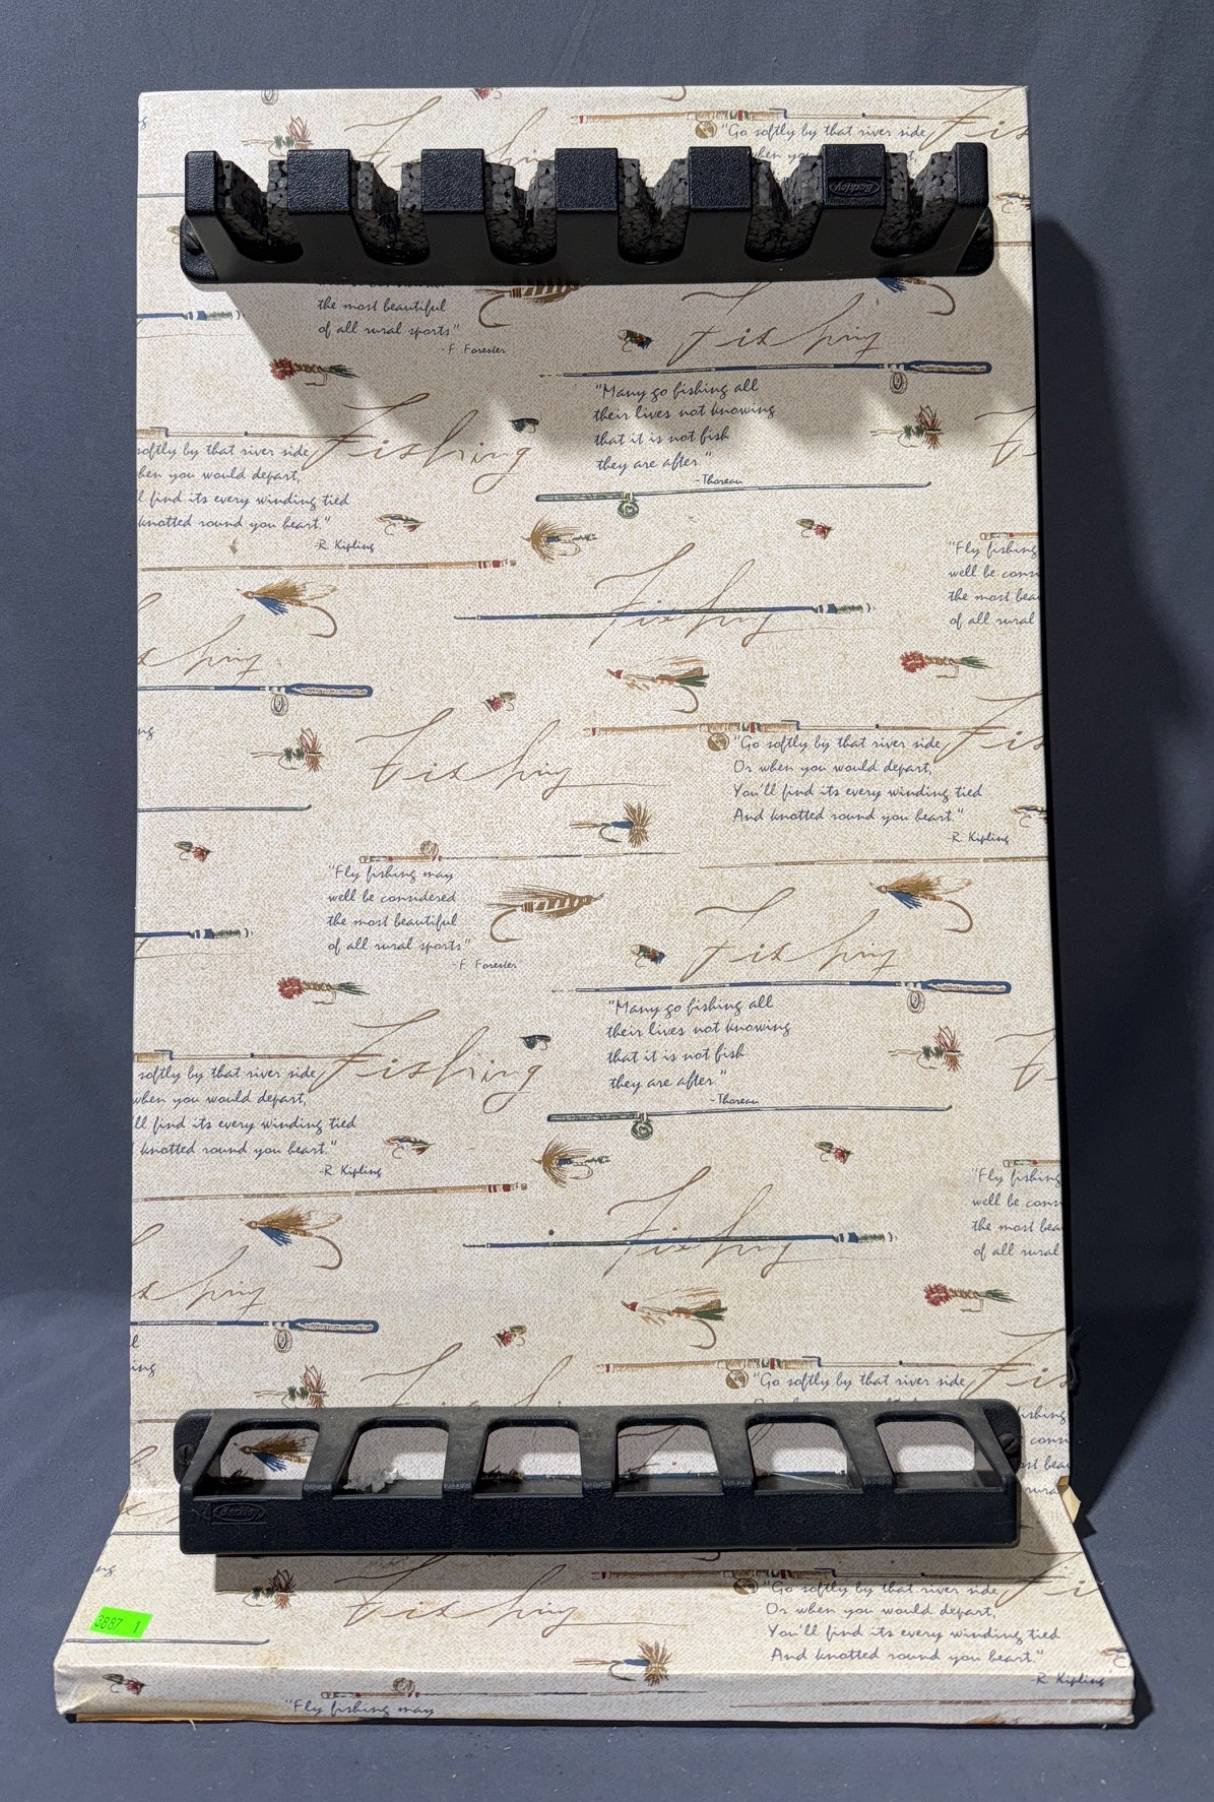 "Go softly by that river side
Fis
Berkley
the most beautiful
of all rural sports"
-F. Forester
Fishing
"Many go fishing all
their lives not knowing
that it is not fish
they are after."
-Thoreau
Fishing
softly by that river side
when you would depart,
find its every winding tied
knotted round you heart."
-R. Kipling
"Fly fishing
well be
the most
of all rural
Fishing
"Go softly by that river side
Or when you would depart,
You'll find its every winding tied
And knotted round you heart."
-R. Kipling
Fis
Fishing
"Fly fishing may
well be considered
the most beautiful
of all rural sports"
-F. Forester
Fishing
"Many go fishing all
their lives not knowing
that it is not fish
they are after."
-Thoreau
Fishing
softly by that river side
when you would depart,
find its every winding tied
knotted round you heart."
-R. Kipling
"Fly fishing
well be
the most
of all rural
Fishing
"Go softly by that river side
Fis
Berkley
"Go softly by that river side
Or when you would depart,
You'll find its every winding tied
And knotted round you heart."
-R. Kipling
Fishing
3887 1
"Fly fishing may